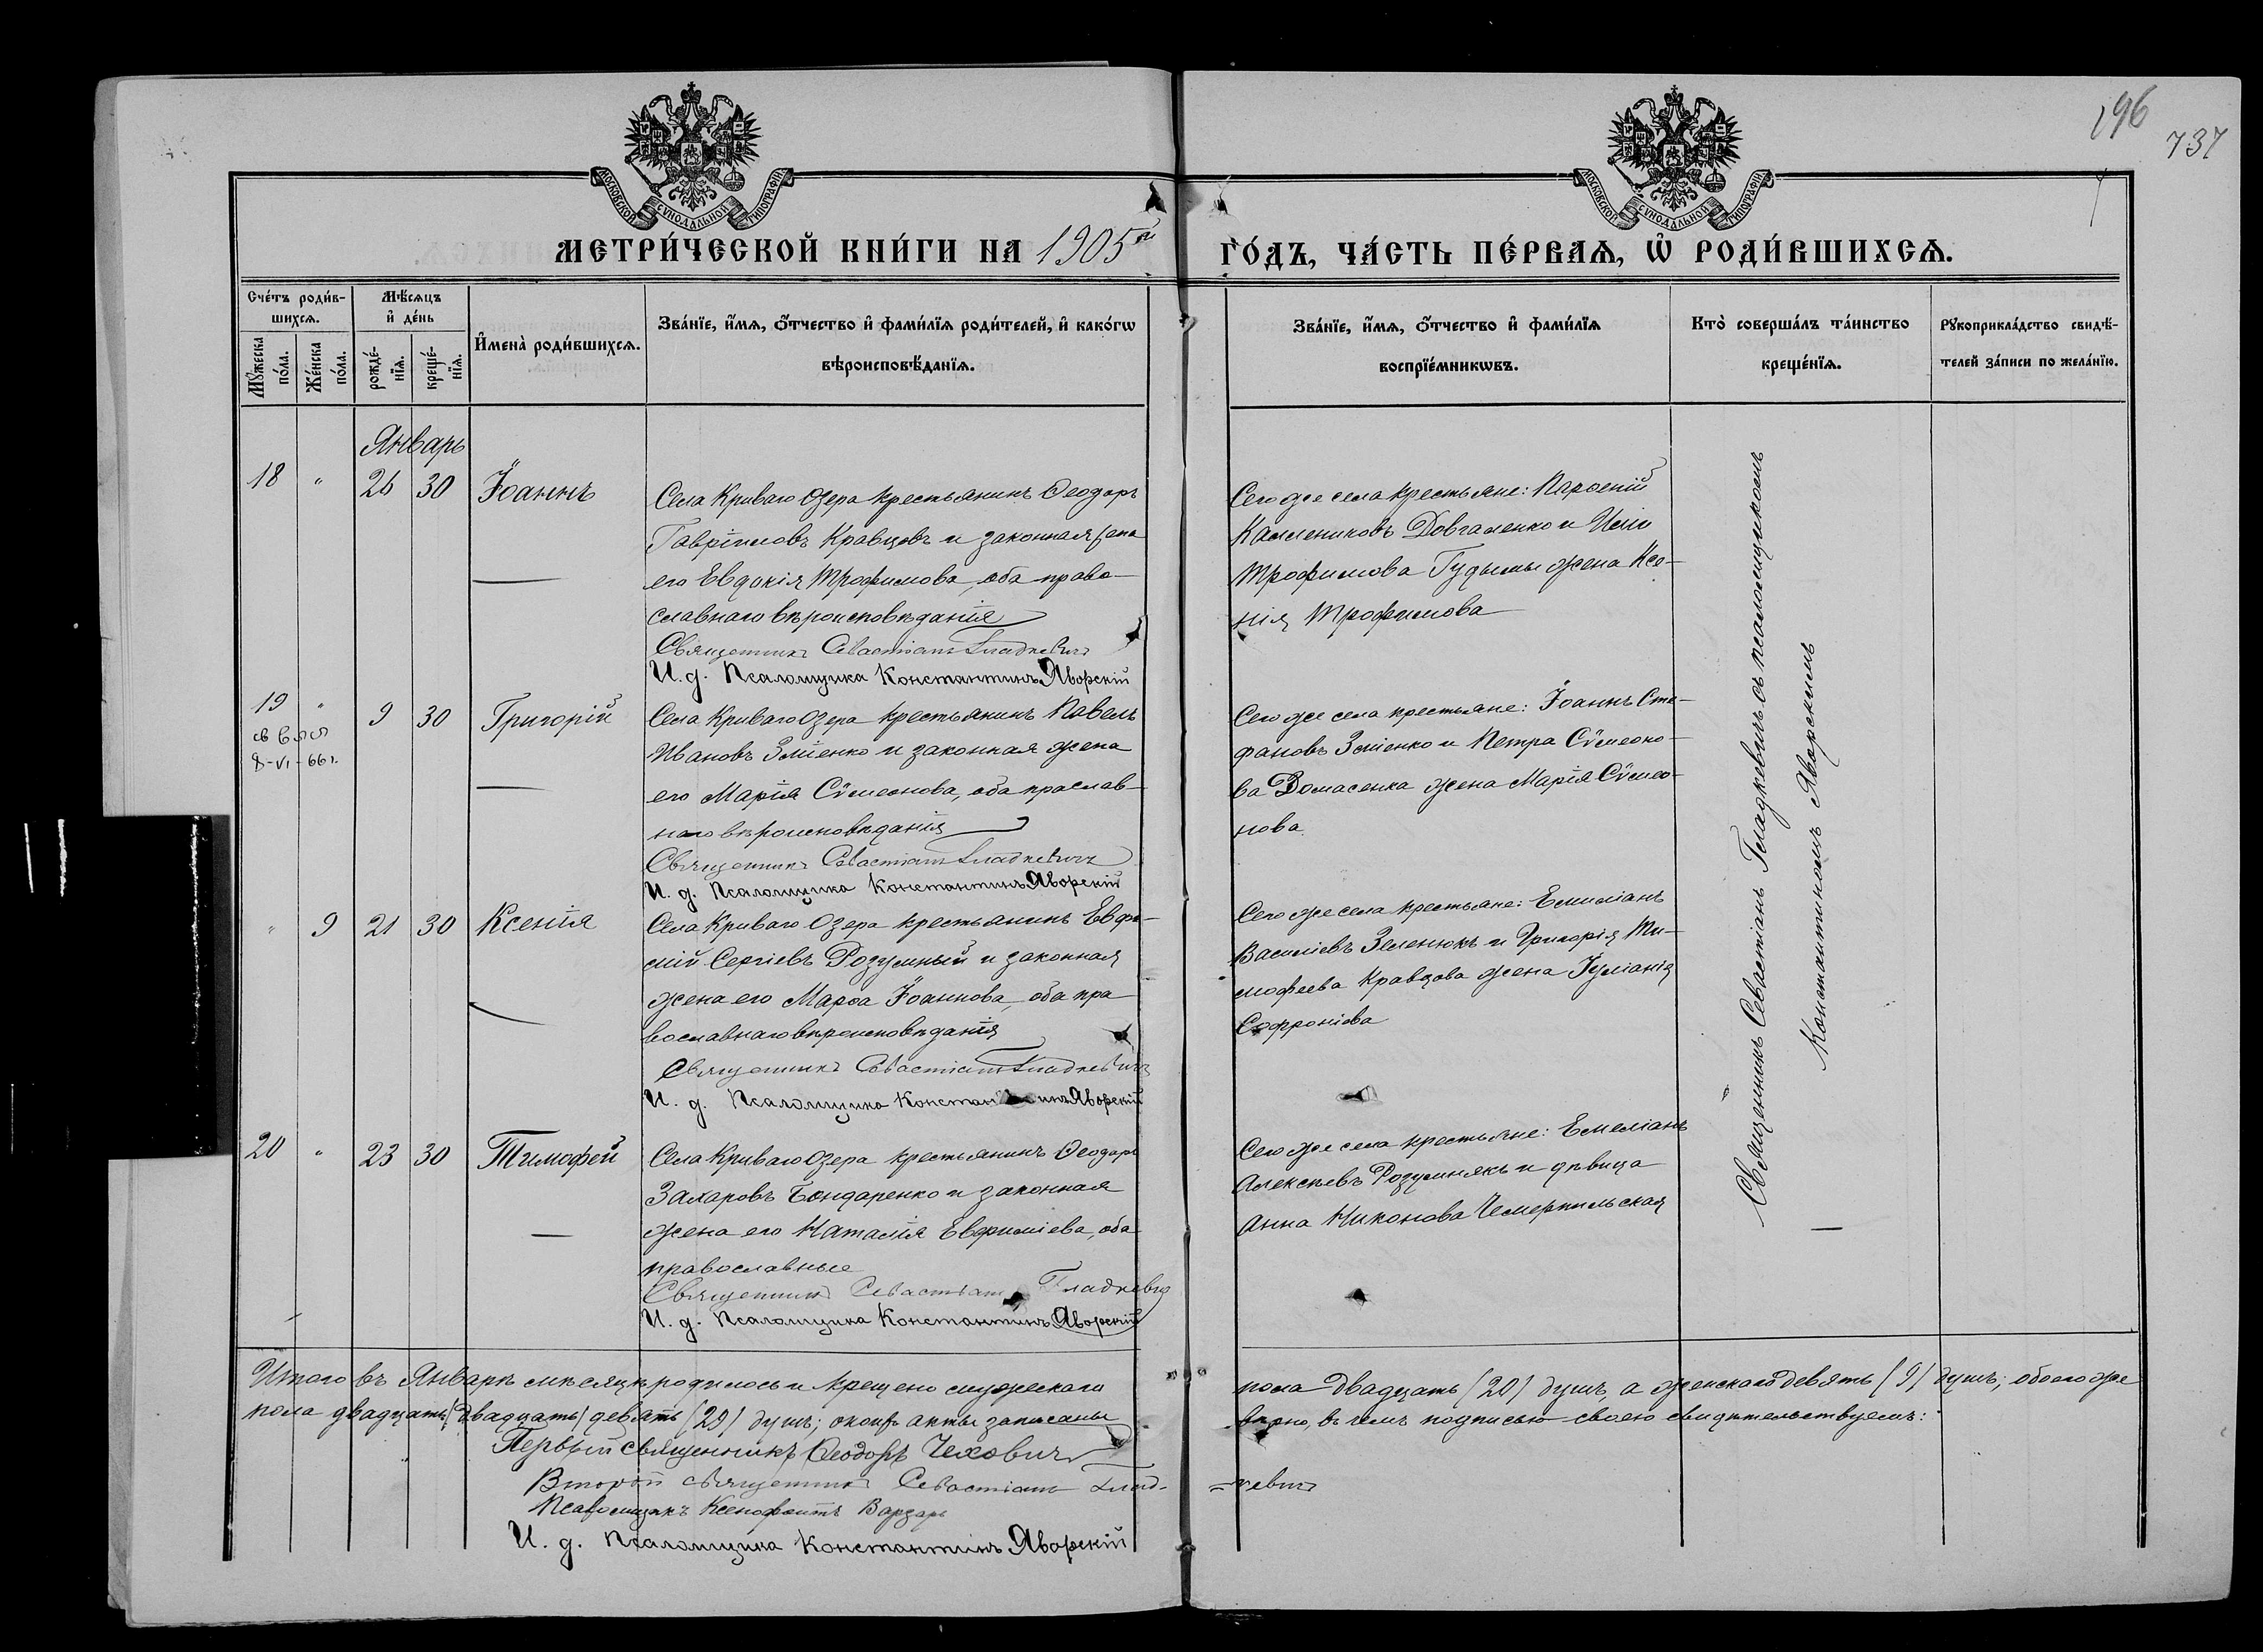 196
737
МОСКОВСКОЙ СѴНОДАЛЬНОЙ ТИПОГРАФІИ
МОСКОВСКОЙ СѴНОДАЛЬНОЙ ТИПОГРАФІИ
МЕТРИ́ЧЕСКОЙ КНИ́ГИ НА 1905й
ГО́ДЪ, ЧА́СТЬ ПЕ́РВАѦ, Ѡ҆ РОДИ́ВШИХСѦ.
Сче́тъ роди́в-
шихсѧ.
Мѣ́сѧцъ
и҆ де́нь
Мꙋ́жеска по́ла.
Же́нска по́ла.
рожде́-нїѧ.
креще́-нїѧ.
И҆мена̀ роди́вшихсѧ.
Зва́нїе, и҆́мѧ, ѻ҆́тчество и҆ фамн́лїѧ роди́телей, и҆ како́гѡ
вѣроисповѣ́данїѧ.
Зва́нїе, и҆́мѧ, ѻ҆́тчество и҆ фами́лїѧ
воспрїе́мникѡвъ.
Кто̀ соверша́лъ та́инство
креще́нїѧ.
Рꙋкоприкла́дство свидѣ́-
телей за́писи по жела́нїю.
Январь
18 " 26 30 Іоаннъ
Села Криваго Озера крестьянинъ Ѳеодоръ
Гавріиловъ Кравцовъ и законная жена
его Евдокія Трофимова, оба право-
славнаго вѣроисповѣданія
Священникъ Севастіанъ Гладкевичъ
И. д. Псаломщика Константинъ Яворскій
Сего же села крестьяне: Парѳеній
Каллениковъ Довгаленко и Иліи
Трофимова Гудымы жена Ксе-
нія Трофимова
19 " 9 30 Григорій
8-VI-66г.
Села Криваго Озера крестьянинъ Павелъ
Ивановъ Зміенко и законная жена
его Марія Сѵмеонова, оба православ-
наго вѣроисповѣданія
Священникъ Севастіанъ Гладкевичъ
И. д. Псаломщика Константинъ Яворскій
Сего же села крестьяне: Іоаннъ Сте-
фановъ Зміенко и Петра Сѵмеоно-
ва Домасенка жена Марія Сѵмео-
нова
" 9 21 30 Ксенія
Села Криваго Озера крестьянинъ Евфи-
мій Сергіевъ Розумный и законная
жена его Марѳа Іоаннова, оба пра
вославнаго вѣроисповѣданія
Священникъ Севастіанъ Гладкевичъ
И. д. Псаломщика Константинъ Яворскій
Сего же села крестьяне: Емиліанъ
Василіевъ Зеленюкъ и Григорія Ти-
мофеева Кравцова жена Іуліанія
Софроніева
20 " 23 30 Тимофей
Села Криваго Озера крестьянинъ Ѳеодоръ
Захаровъ Бондаренко и законная
жена его Наталія Евфиміева, оба
православные
Священникъ Севастіанъ Гладкевич
И. д. Псаломщика Константинъ Яворскій
Сего же села крестьяне: Емеліанъ
Алексѣевъ Розумнякъ и дѣвица
Анна Никонова Чемерпильская
Священникъ Севастіанъ Гладкевичъ съ псаломщикомъ
Константиномъ Яворскимъ
Итого въ Январѣ мѣсяцѣ родилось и крещено мужескаго
пола двадцать (20) душъ, а женскаго девять (9) душъ; обоего же
пола двадцать/двадцать/ девять (29) душъ; акты записаны
вѣрно, въ чемъ подписью своею свидѣтельствуемъ:
Первый священникъ Ѳеодоръ Чеховичъ
Второй священникъ Севастіанъ Глад-
=кевичъ
Псаломщикъ Ксенофонтъ Варзарь
И. д. Псаломщика Константинъ Яворскій